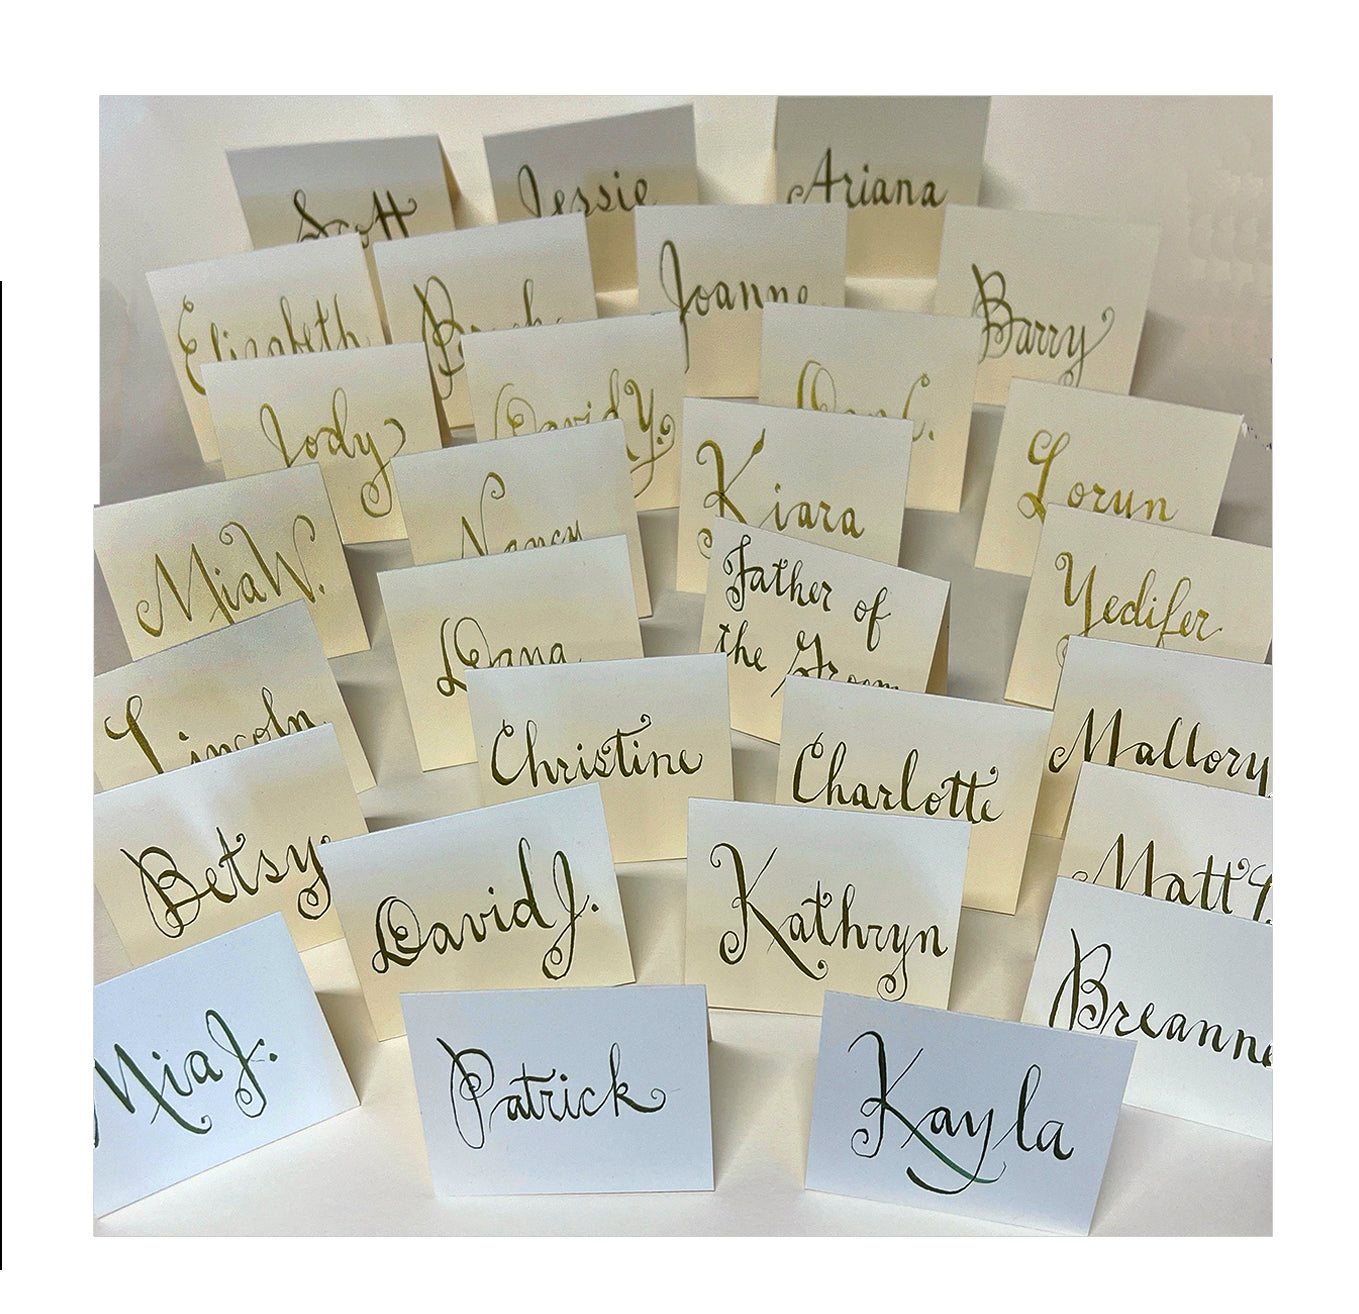 Scott
Jessie
Ariana
Elizabeth
Joanne
Barry
Jody
David Y.
Dan C.
Kiara
Lorun
Mia W.
Nancy
Father of
the Groom
Yedifer
Dana
Lincoln
Christine
Charlotte
Mallory
Betsy
David J.
Kathryn
Matt
Breanne
Mia J.
Patrick
Kayla